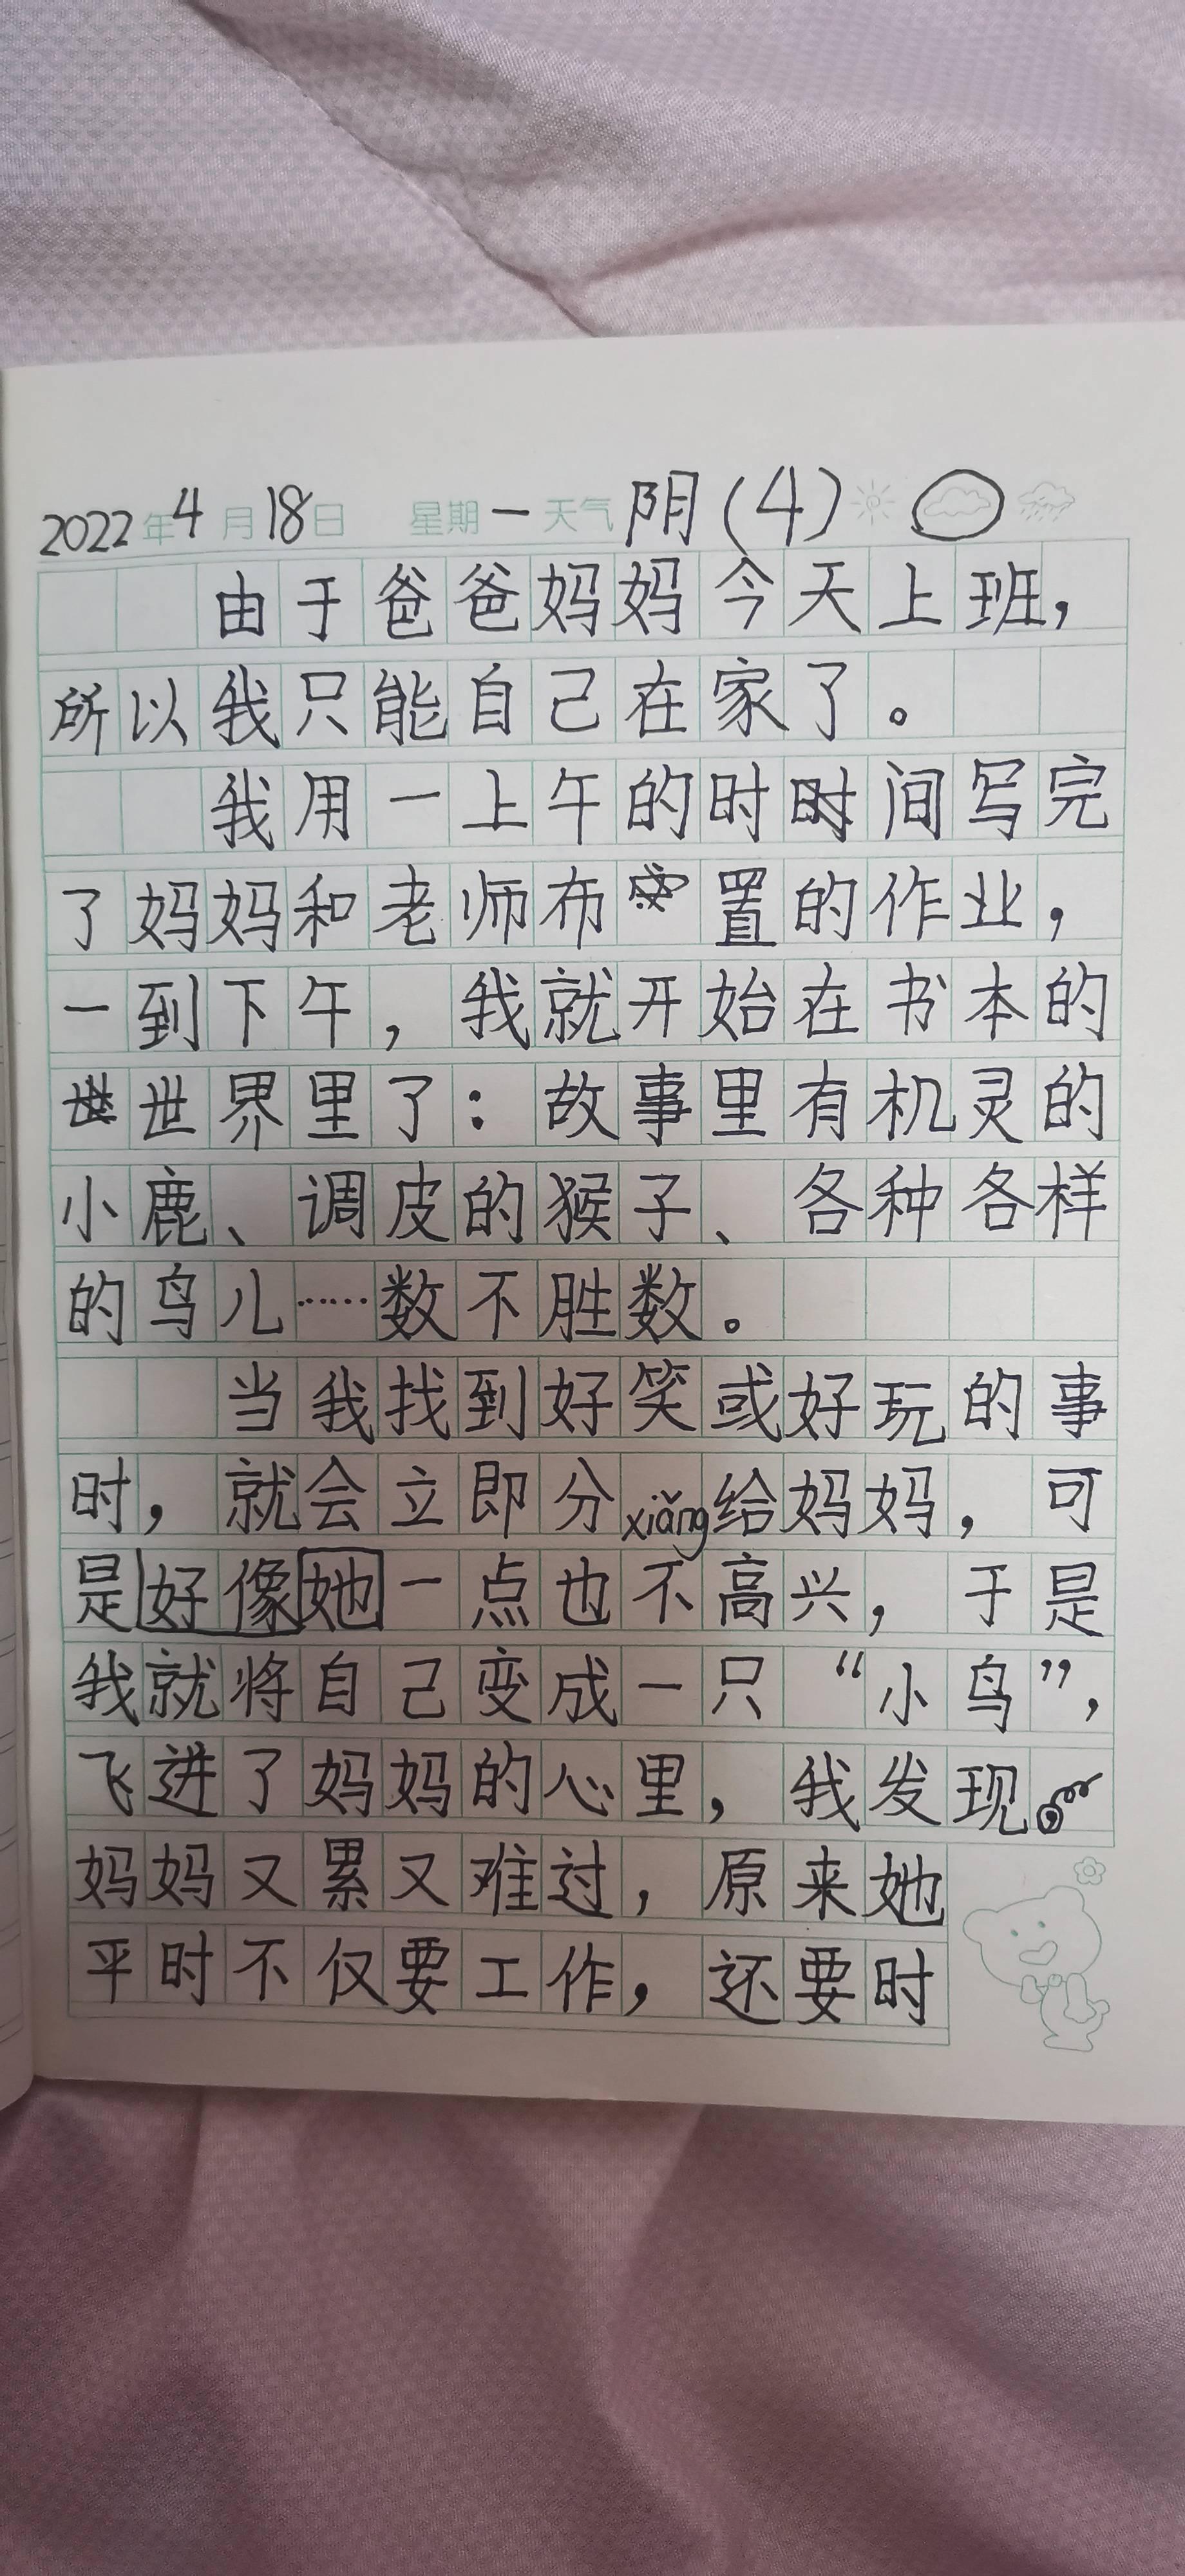 2022年4月18日 星期一 天气 阴(4)
由于爸爸妈妈今天上班,
所以我只能自己在家了。
我用一上午的时间写完
了妈妈和老师布置的作业,
一到下午,我就开始在书本的
世界里了:故事里有机灵的
小鹿、调皮的猴子、各种各样
的鸟儿……数不胜数。
当我找到好笑或好玩的事
时,就会立即分xiǎng给妈妈,可
是好像她一点也不高兴,于是
我就将自己变成一只“小鸟”,
飞进了妈妈的心里,我发现
妈妈又累又难过,原来她
平时不仅要工作,还要时